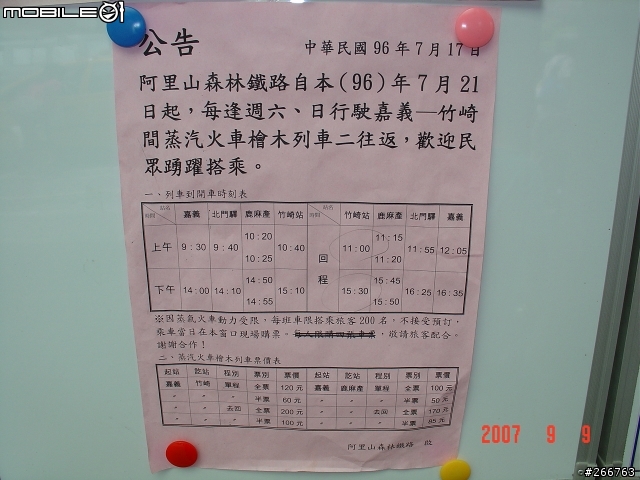 MOBILE01
公告
中華民國 96 年 7 月 17 日
阿里山森林鐵路自本(96)年 7 月 21
日起，每逢週六、日行駛嘉義—竹崎
間蒸汽火車檜木列車二往返，歡迎民
眾踴躍搭乘。
一、列車到開車時刻表
站名 時間 嘉義 北門驛 鹿麻產 竹崎站 站名 時間 竹崎站 鹿麻產 北門驛 嘉義
上午 9：30 9：40 10：20 10：25 10：40 回程 11：00 11：15 11：20 11：55 12：05
下午 14：00 14：10 14：50 14：55 15：10 15：30 15：45 15：50 16：25 16：35
※因蒸氣火車動力受限，每班車限搭乘旅客 200 名，不接受預訂，
乘車當日在本窗口現場購票。每人限購四張車票，敬請旅客配合。
謝謝合作！
二、蒸汽火車檜木列車票價表
起站 訖站 程別 票別 票價 起站 訖站 程別 票別 票價
嘉義 竹崎 單程 全票 120 元 嘉義 鹿麻產 單程 全票 100 元
〃 〃 〃 半票 60 元 〃 〃 〃 半票 50 元
〃 〃 去回 全票 200 元 〃 〃 去回 全票 170 元
〃 〃 〃 半票 100 元 〃 〃 〃 半票 85 元
阿里山森林鐵路 啟
2007 9 9
#266763